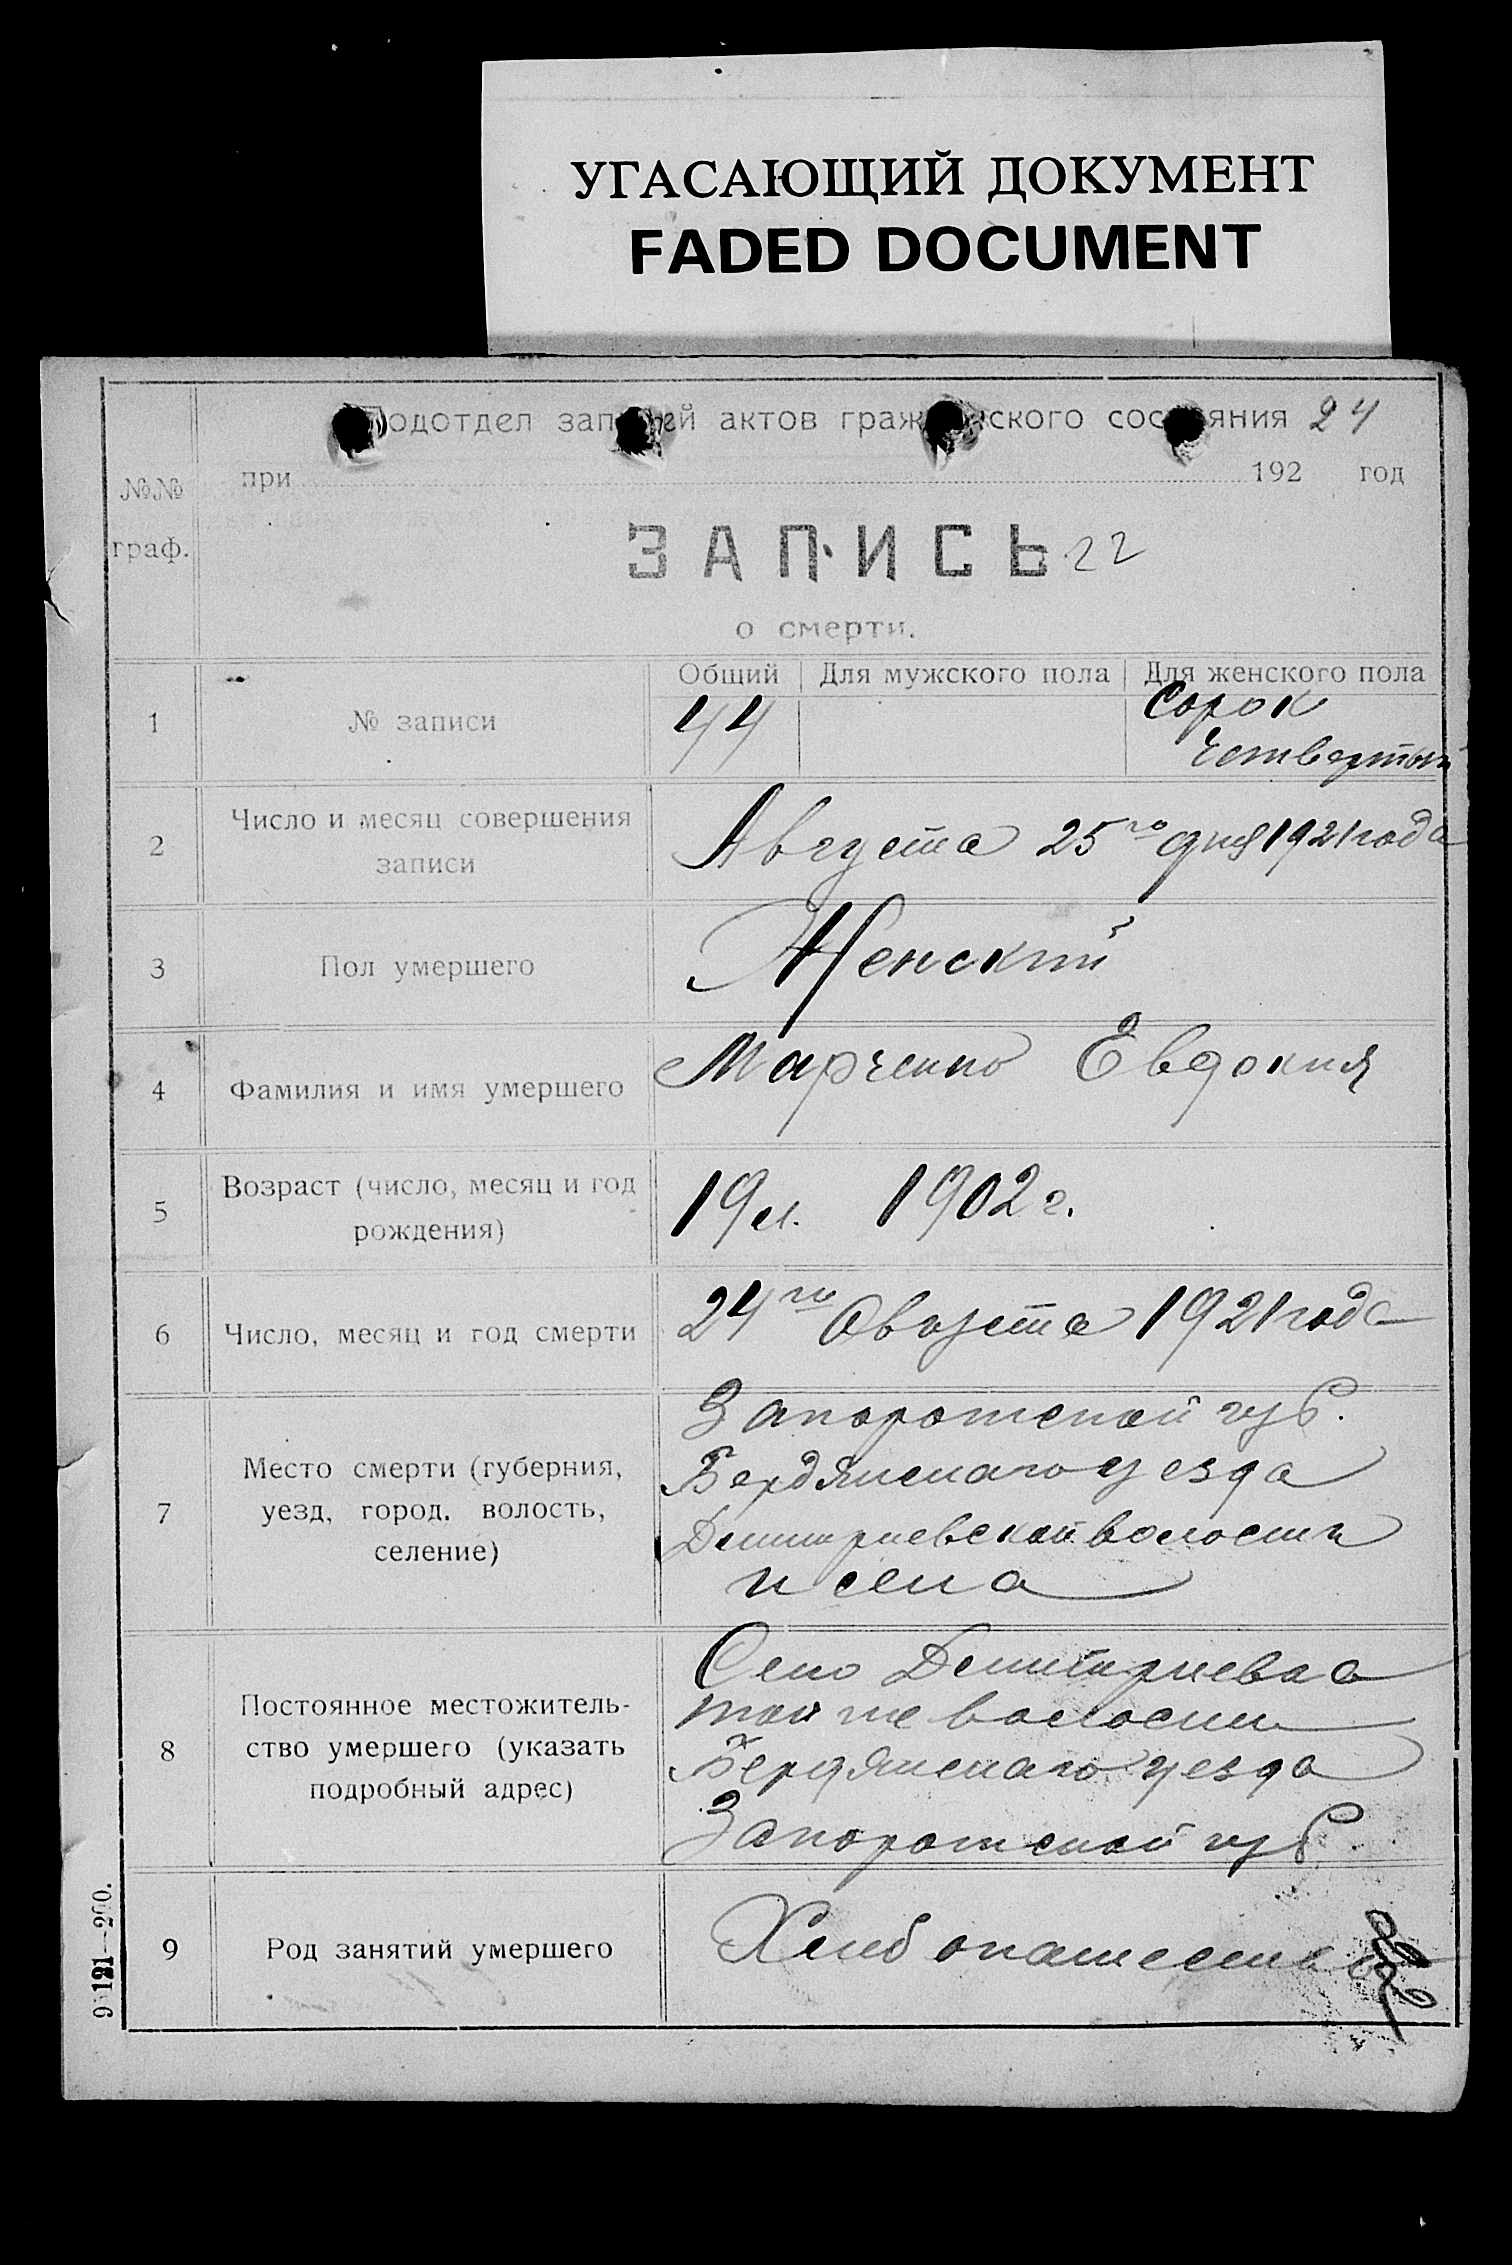 УГАСАЮЩИЙ ДОКУМЕНТ
FADED DOCUMENT
Подотдел записей актов гражданского состояния 24
при 192 год
№№
граф.
ЗАПИСЬ 22
о смерти.
Общий Для мужского пола Для женского пола
1 № записи 44 Сорок
четвертый
2 Число и месяц совершения
записи
Августа 25го дня 1921 года
3 Пол умершего Женский
4 Фамилия и имя умершего Марченко Евдокия
5 Возраст (число, месяц и год
рождения)
19 л. 1902 г.
6 Число, месяц и год смерти 24го Августа 1921 года
7 Место смерти (губерния,
уезд, город, волость,
селение)
Запорожской губ.
Бердянскаго уезда
Дмитриевской волости
и села
8 Постоянное местожитель-
ство умершего (указать
подробный адрес)
Село Дмитриевка
той же волости
Бердянскаго уезда
Запорожской губ.
9 Род занятий умершего